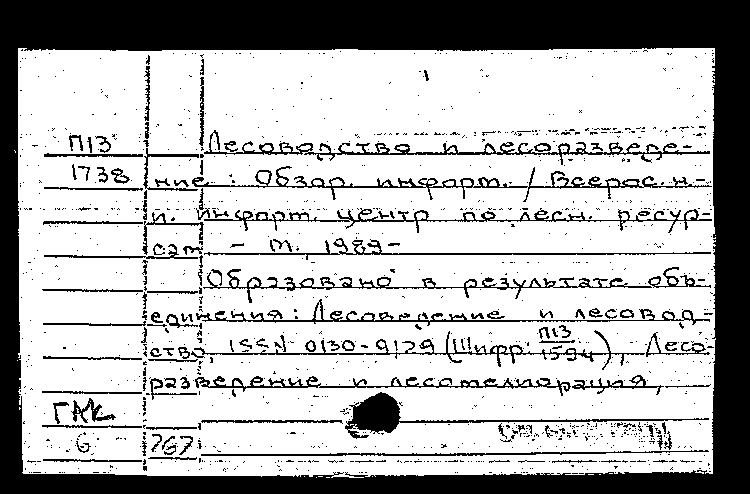 П13 Лесоводство и лесоразведе-
1738 ние : Обзор. информ. / Всерос. н-
и. информ. центр по лесн. ресур-
сам - М., 1989-
Образовано в результате объ-
единения : Лесоведение и лесовод-
ство, ISSN 0130-9129 (Шифр: П13/1594), Лесо-
разведение и лесомелиорация,
ГАК
6 767